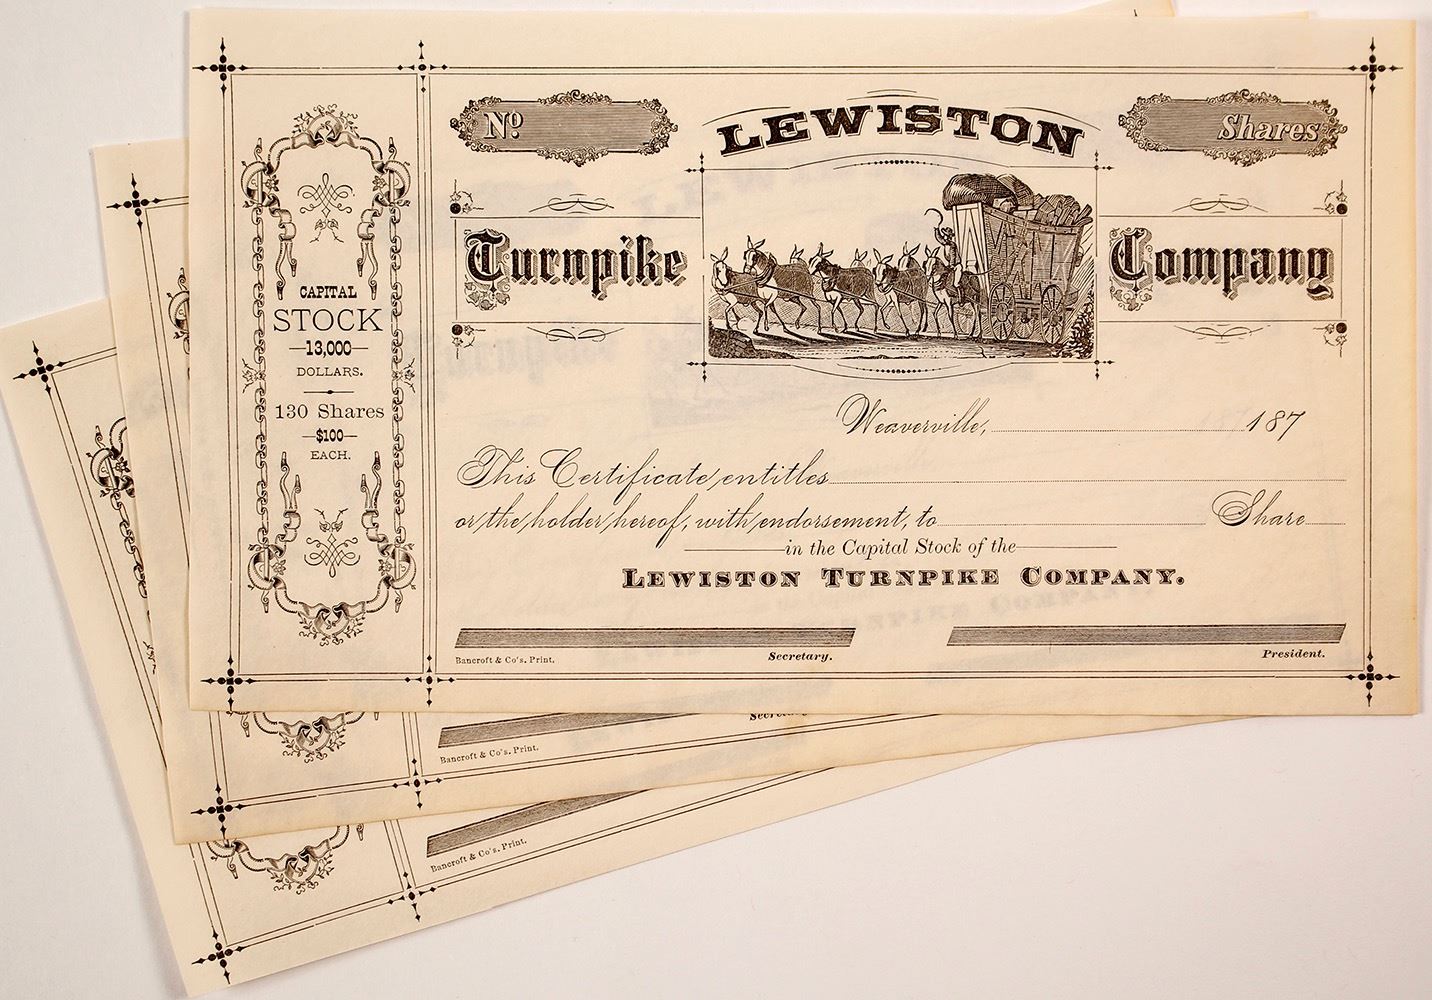 Nº
LEWISTON
Shares
Turnpike
Company
CAPITAL
STOCK
13,000
DOLLARS.
130 Shares
$100
EACH.
Weaverville, 187
This Certificate entitles
or the holder hereof, with endorsement, to Share
in the Capital Stock of the
LEWISTON TURNPIKE COMPANY.
Bancroft & Co's. Print.
Secretary.
President.
Bancroft & Co's. Print.
Bancroft & Co's. Print.